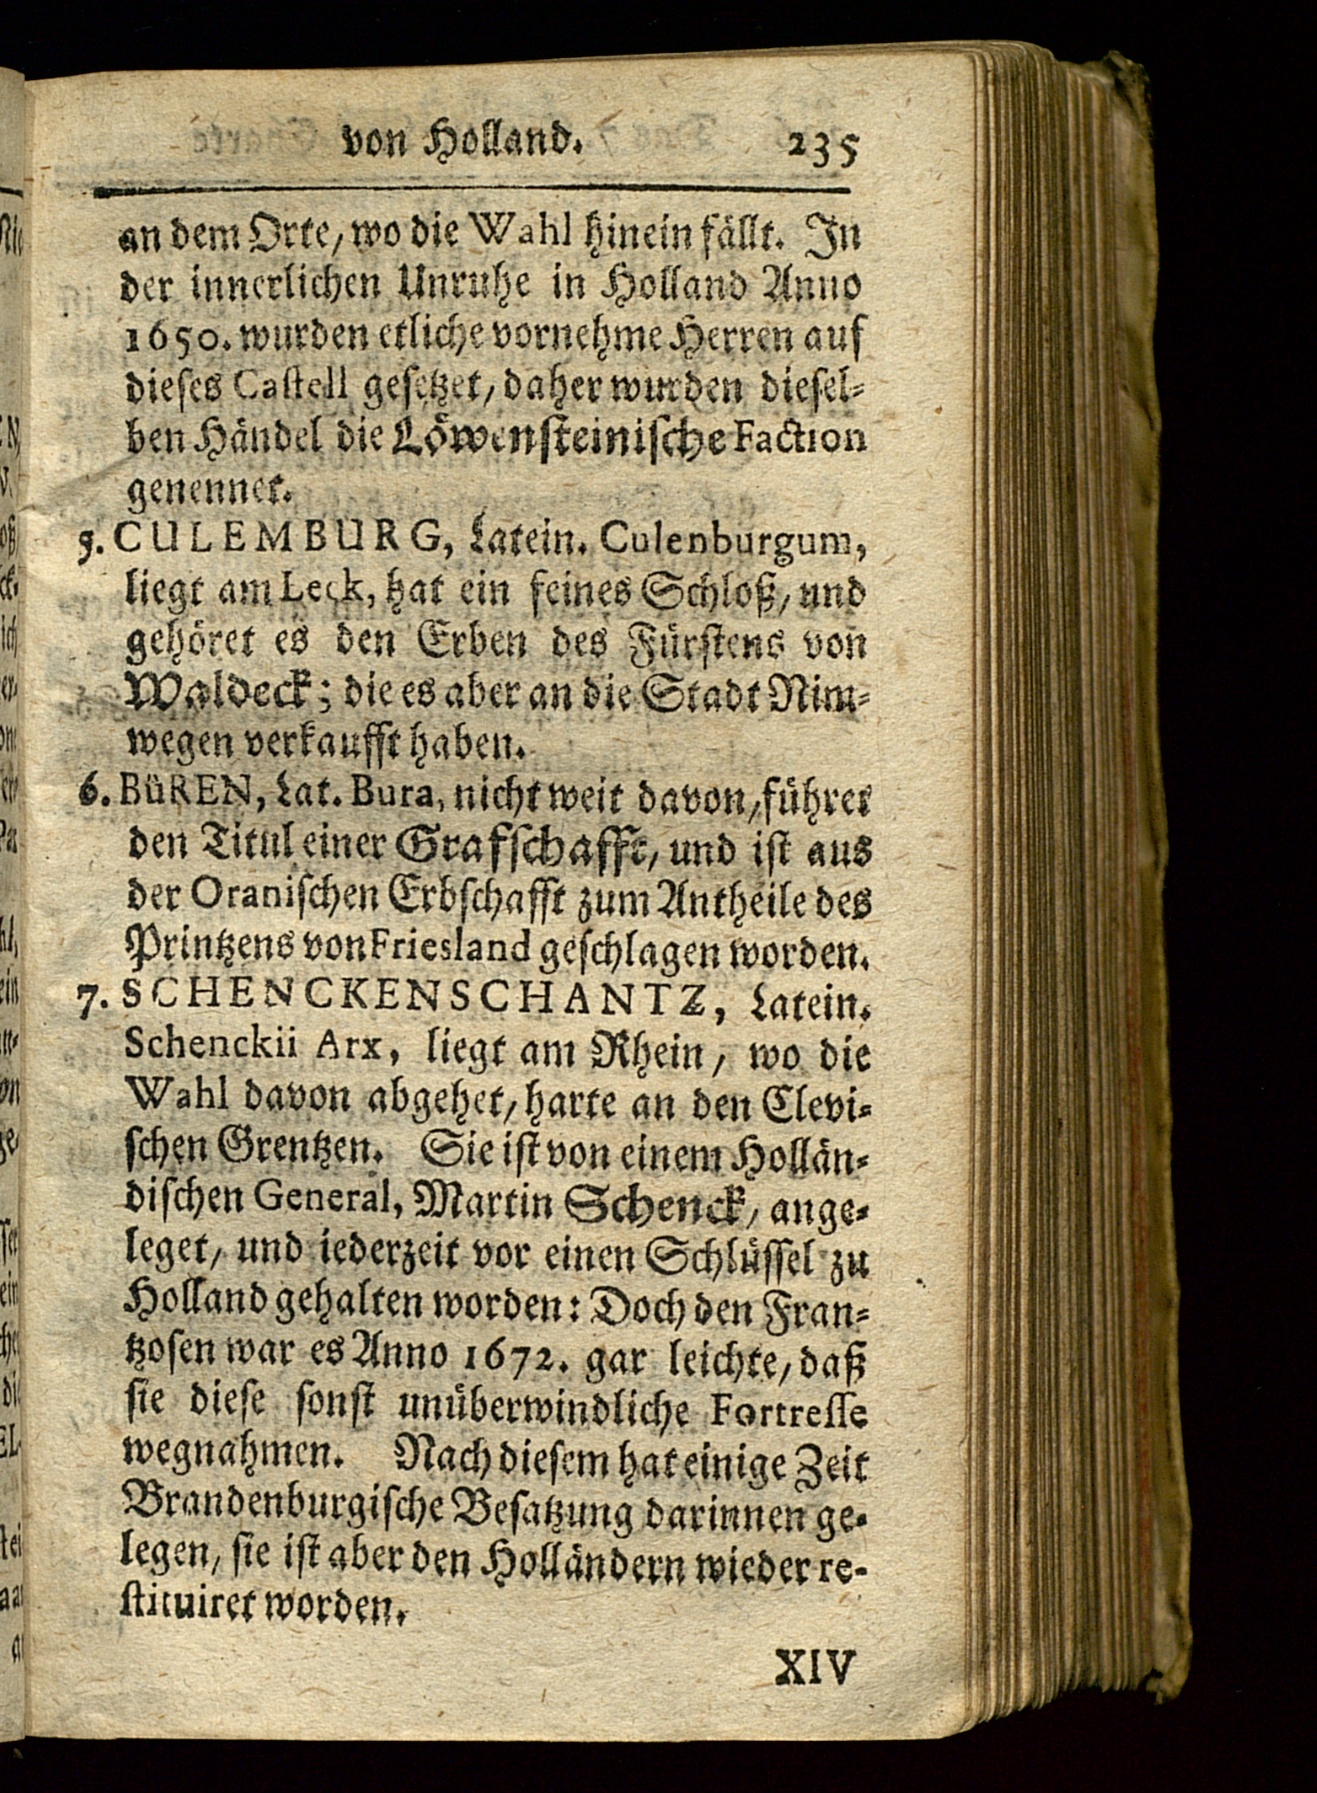 von Holland. 235
an dem Orte, wo die Wahl hinein fällt. In
der innerlichen Unruhe in Holland Anno
1650. wurden etliche vornehme Herren auf
dieses Castell gesetzet, daher wurden diesel-
ben Händel die Löwensteinische Faction
genennet.
5. CULEMBURG, Latein. Culenburgum,
liegt am Leck, hat ein feines Schloß, und
gehöret es den Erben des Fürstens von
Waldeck; die es aber an die Stadt Nim-
wegen verkaufft haben.
6. BüREN, Lat. Bura, nicht weit davon, führet
den Titul einer Grafschafft, und ist aus
der Oranischen Erbschafft zum Antheile des
Printzens von Friesland geschlagen worden.
7. SCHENCKENSCHANTZ, Latein.
Schenckii Arx, liegt am Rhein, wo die
Wahl davon abgehet, harte an den Clevi-
schen Grentzen. Sie ist von einem Hollän-
dischen General, Martin Schenck, ange-
leget, und iederzeit vor einen Schlüssel zu
Holland gehalten worden: Doch den Fran-
tzosen war es Anno 1672. gar leichte, daß
sie diese sonst unüberwindliche Fortresse
wegnahmen. Nach diesem hat einige Zeit
Brandenburgische Besatzung darinnen ge-
legen, sie ist aber den Holländern wieder re-
stituiret worden.
XIV